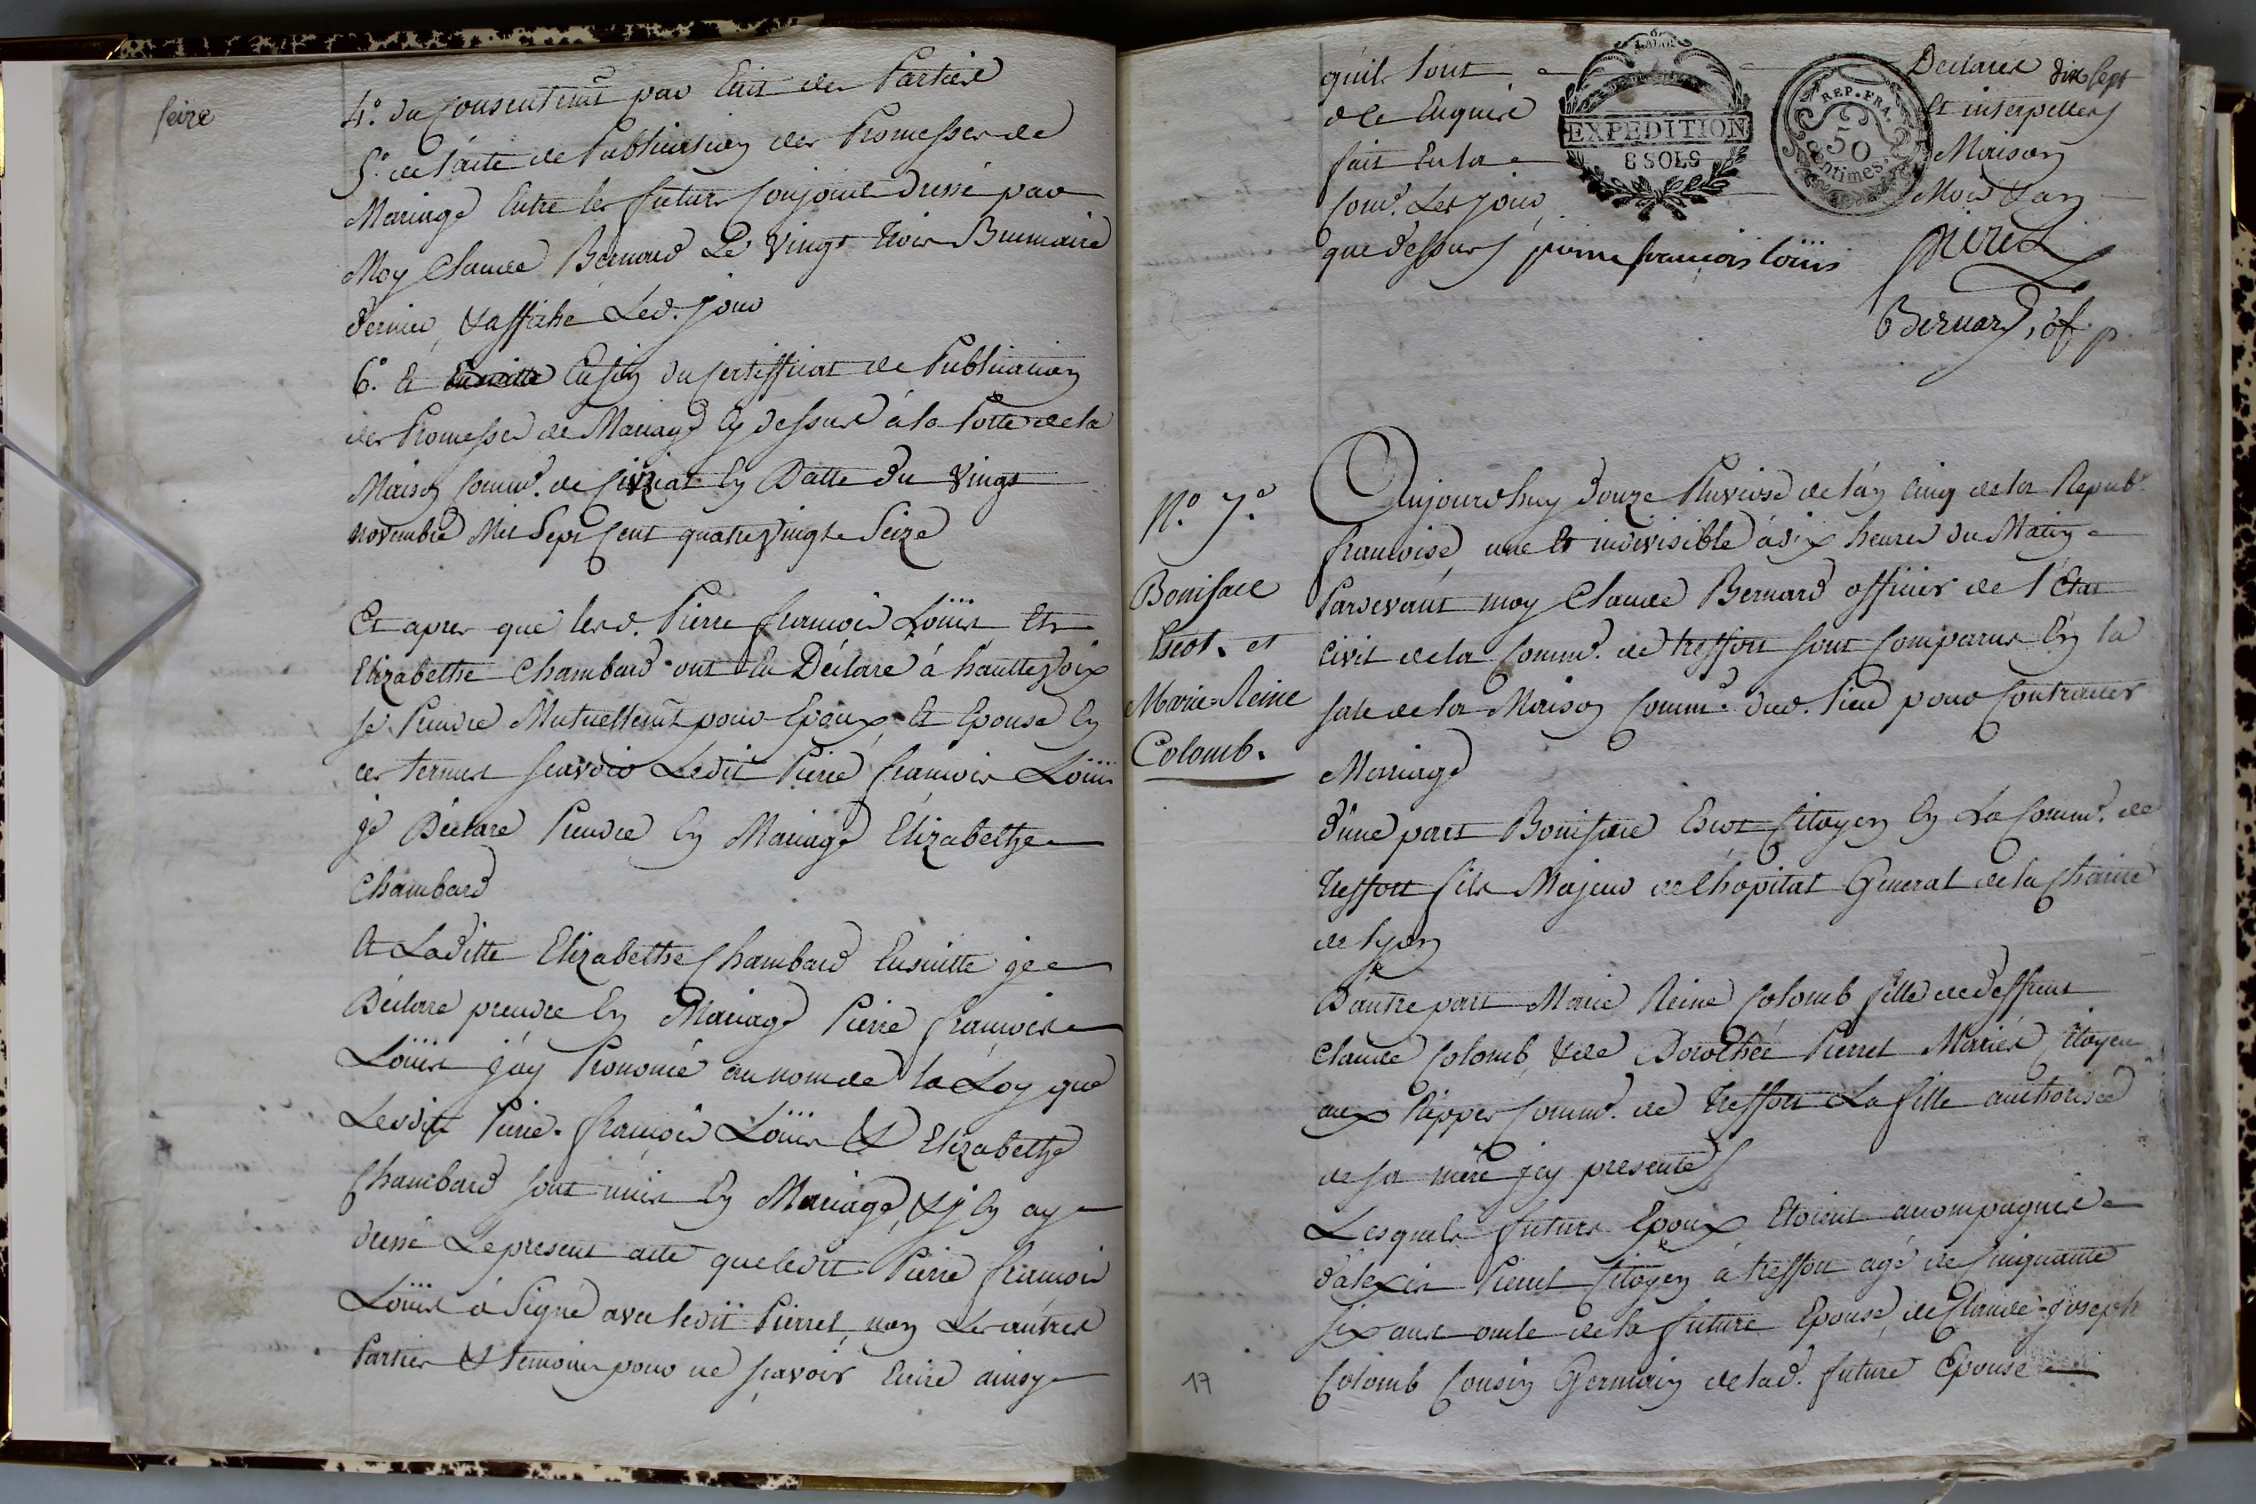 seize
4.° du Consentemt par Ecrit des Parties
5.° de l'acte de Publication des Promesses de
Mariage Entre les futurs Conjoint dressé par
Moy Claude Bernard Le Vingt trois Brumaire
dernier, & affiché Led. jour
6.° Et Ensuitte Enfin du Certifficat de Publication
des Promesses de Mariage Cy dessus à la Porte de la
Maison Comme. de Civriat En Datte du Vingt
novembre Mil Sept Cent quatre Vingt Seize
Et apres que lesd. Pierre François Löüis Et
Elizabethe Chambard ont Eu Déclaré à hautte Voix
se Prendre Mutuellemt pour Epoux, Et Epouse En
ces termes scavoir Ledit Pierre François Löüis
je Déclare Prendre En Mariage Elizabethe
Chambard
Et Laditte Elizabethe Chambard Ensuitte je
Déclare prendre En Mariage Pierre François
Löüis j'ay Prononcé au nom de la Loy que
Lesdits Pierre François Löüis & Elizabethe
Chambard sont unis En Mariage, & j'En ay
dressé Le present acte que ledit Pierre François
Löüis à Signé avec ledit Pierret, non Les autres
Parties & temoins pour ne scavoir Ecrire ainsy
qu'ils l'ont Declarés dix sept
de ce Enquis Et interpellés
fait En la Maison
Come. Les jour, Mois & an
que dessus pierre françois löüis
Bernard, of. p.
LA LOI
EXPEDITION
8 SOLS
REP. FRA.
50
Centimes.
N.° 7.°
Boniface
Escot. et
Marie-Reine
Colomb.
Aujourd'huy douze Pluviose de l'an Cinq de la Repub.
francoise, une Et indivisible à dix heures du Matin
Pardevant moy Claude Bernard officier de l'Etat
Civil de la Comme. de treffort sont Comparus En la
sale de la Maison Comme. dud. lieu pour Contracter
Mariage
d'une part Boniface Escot Citoyen En La Comme. de
treffort fils Majeur de l'hopital General de la Charité
de Lyon
D'autre part Marie Reine Colomb fille de deffunt
Claude Colomb, & de Dorothée Pierret Mariés Citoyens
aux Rippes Comme. de treffort La fille authorisée
de sa mère jcy presente
Lesquels futurs Epoux Etoient acompagnés
d'alexis Pierret Citoyen à treffort agé de Cinquante
six ans oncle de la future Epouse, de Claude-joseph
Colomb Cousin Germain de lad. future Epouse
17